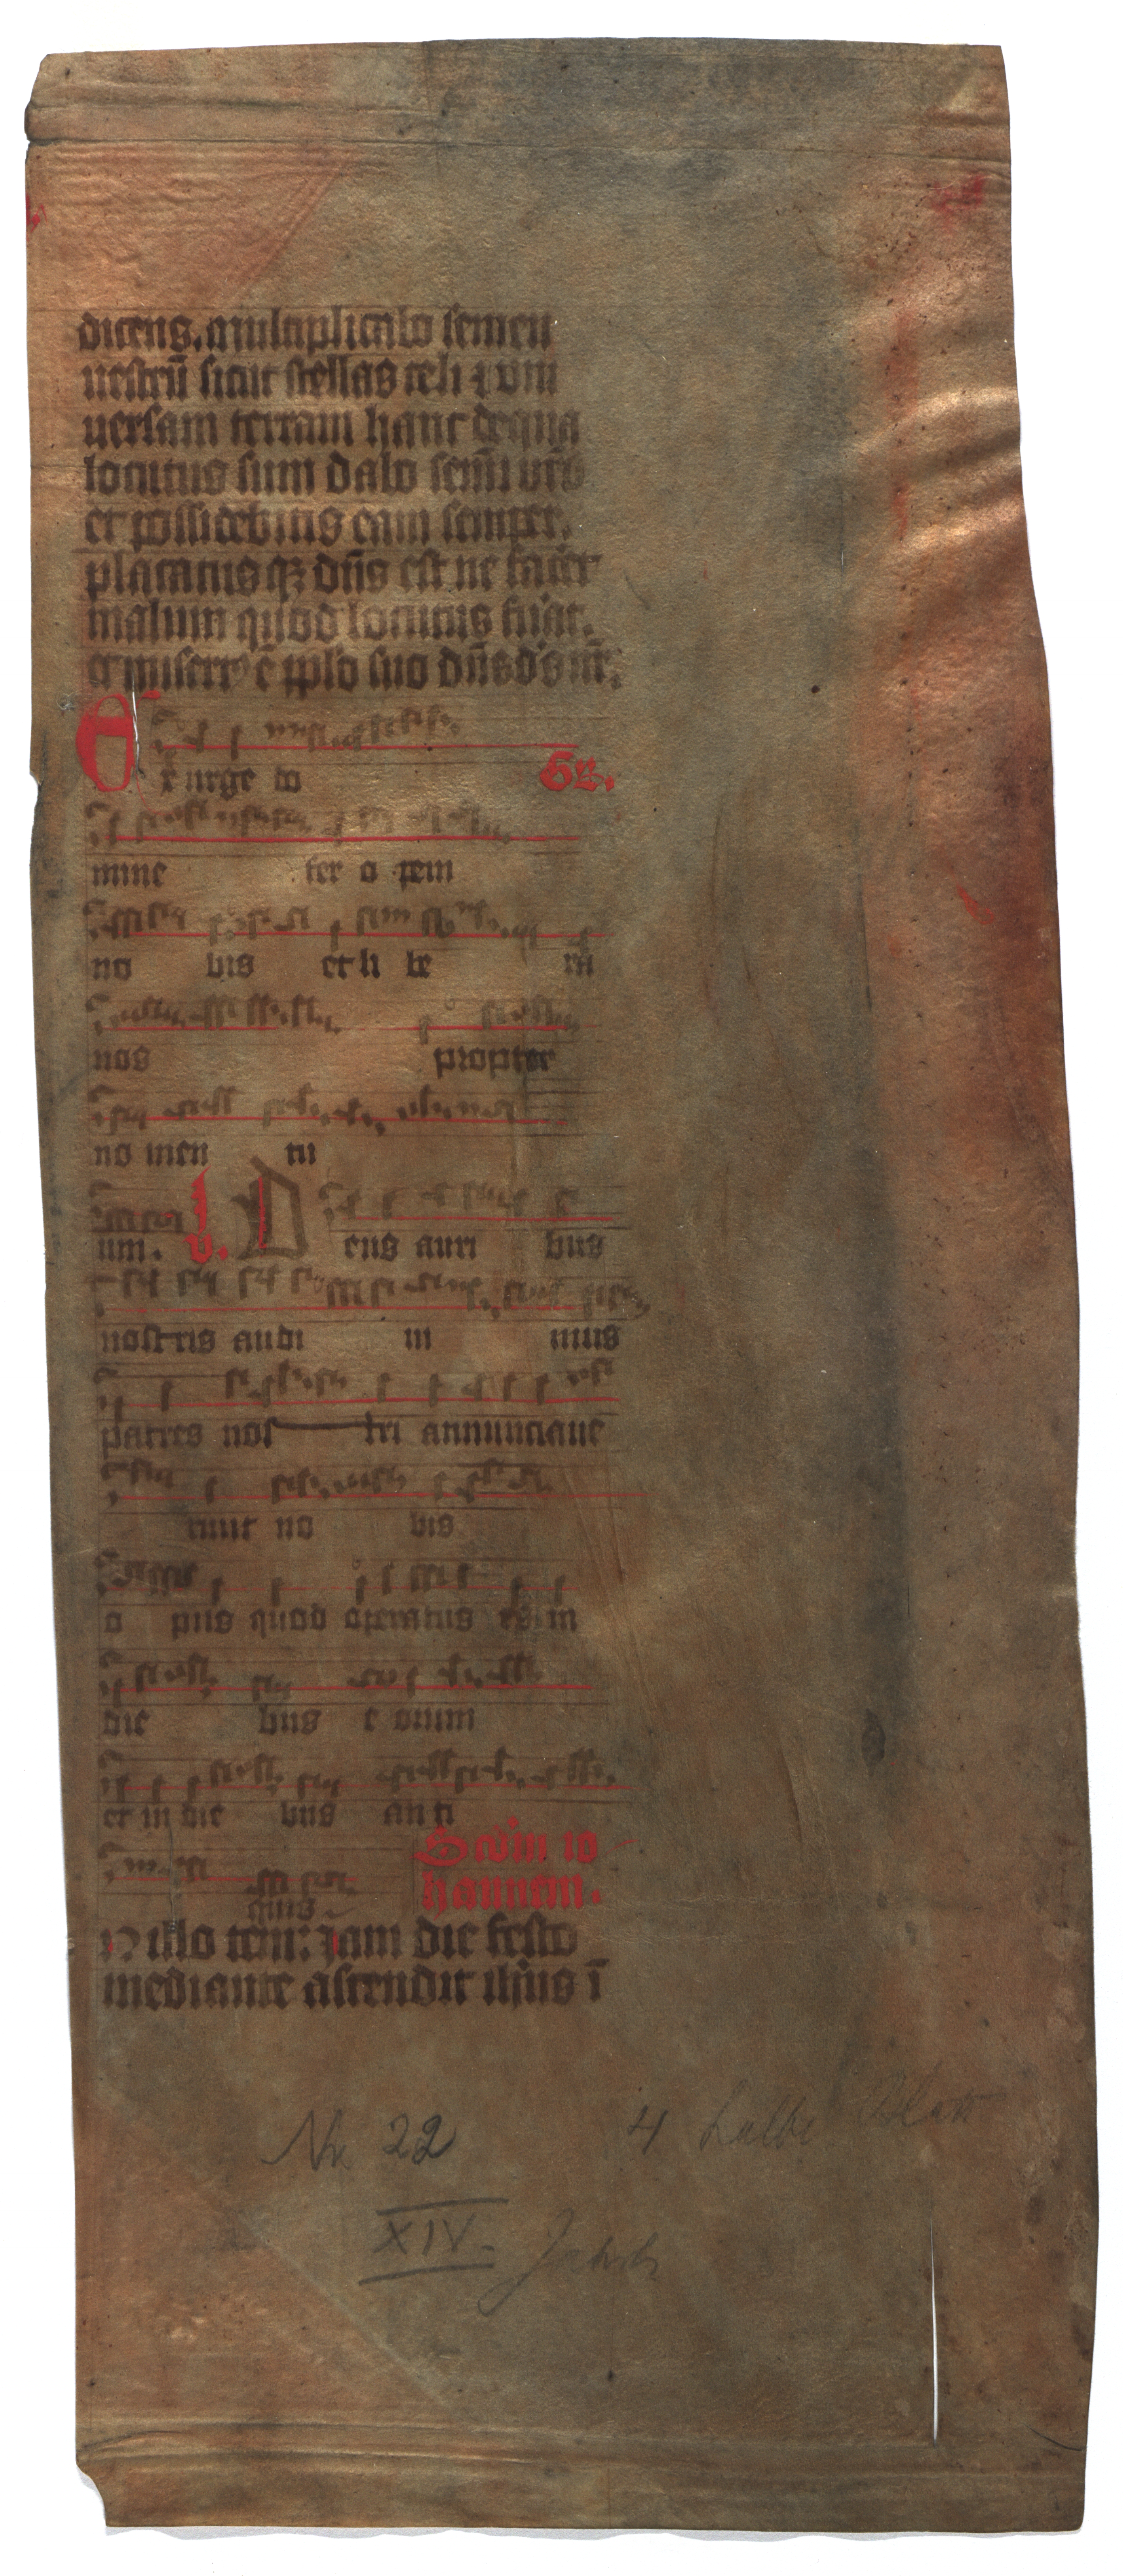 dicens. multiplicabo semen
uestrū sicut stellas celi ⁊ vni
uersam terram hanc dequa
locutus sum dabo semĩ vr̃o
et possidebitis eam semper.
placatusqꝫ dn̄s est ne facẽt
malum quod locutus fuãt.
⁊ misert᷒ ē pplo suo dn̄s ds nr̃.
Exurge do Gr̃.
mine fer o pem
no bis et li be ra
nos propter
no men tu
um. v. Deus auri bus
nostris audi ui mus
patres nos tri annunciaue
runt no bis
o pus quod operatus es in
die bus e orum
et in die bus an ti
quis Scd'm io
hannem.
N illo tem: Jam die festo
mediante ascendit ihūs ī
Nr. 22 4 halbe Blatt
XIV. Jahrh